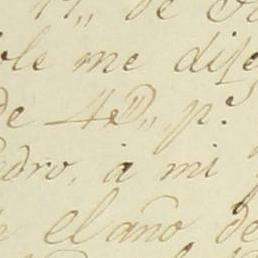 de
ble me dise
de 4 D,, p.s
edro, à mi
el año de